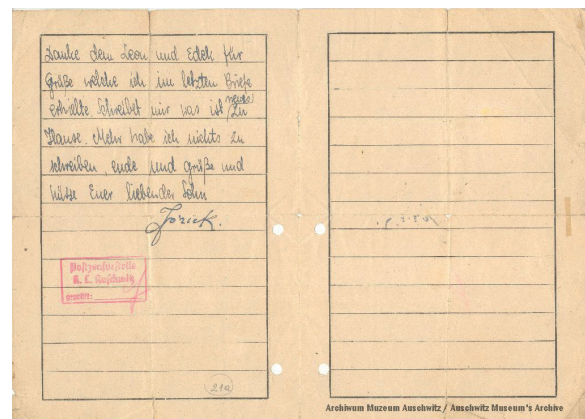 Danke dem Leon und Edek für
Grüße welche ich im letzten Briefe
erhälte. Schreibet mir was ist neues zu
Hause. Mehr habe ich nichts zu
schreiben, ende und grüße und
küsse Euer liebender Sohn
Józick.
Postzensurstelle
K. L. Auschwitz
geprüft:
21a
Archiwum Muzeum Auschwitz / Auschwitz Museum's Archive